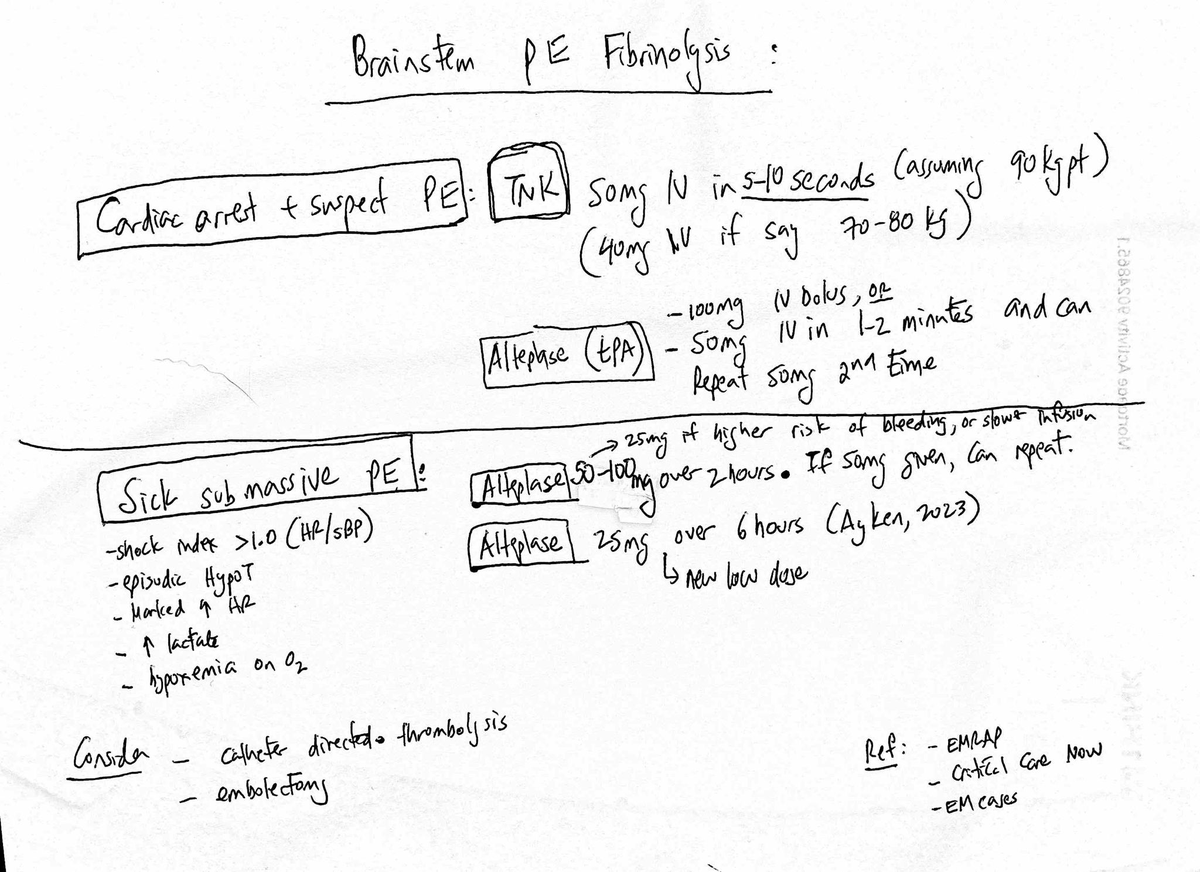 Brainstem PE Fibrinolysis :
Cardiac arrest + suspect PE : TNK 50mg IV in 5-10 seconds (assuming 90kg pt)
(40mg IV if say 70-80 kg)
Alteplase (tPA)
- 100mg IV bolus, OR
- 50mg IV in 1-2 minutes and can
Repeat 50mg 2nd time
Sick submassive PE :
- shock index >1.0 (HR/SBP)
- episodic HypoT
- Marked ↑ HR
- ↑ lactate
- hypoxemia on O2
→ 25mg if higher risk of bleeding, or slower infusion
Alteplase 50-100mg over 2 hours. If 50mg given, can repeat.
Alteplase 25mg over 6 hours (Ayken, 2023)
↳ new low dose
Consider - catheter directed thrombolysis
- embolectomy
Ref: - EMRAP
- Critical Care Now
- EM cases
Mortgage Activity 9024865.1